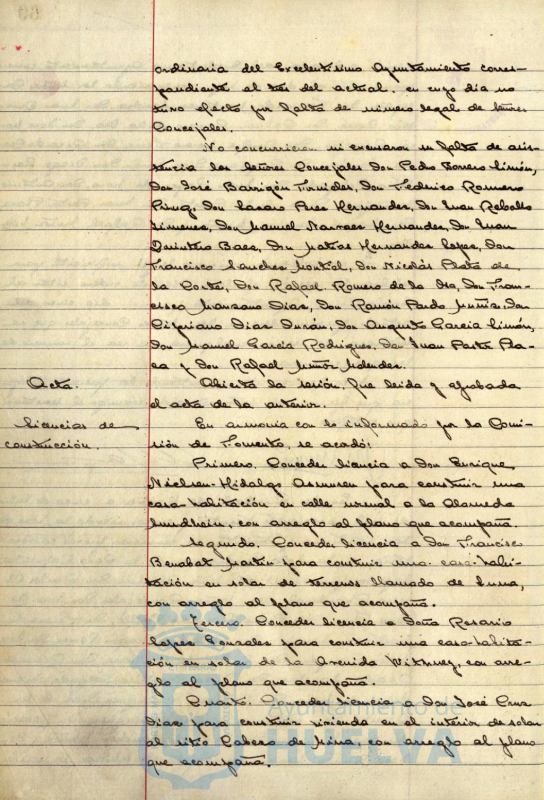 ordinaria del Excelentísimo Ayuntamiento corres-
pondiente al tres del actual, en cuyo día no
tuvo efecto por falta de número legal de señores
Concejales.
No concurrieron ni excusaron su falta de asis-
tencia los señores Concejales Don Pedro Borrero Limón,
Don José Barrigón Don Federico Romero
Don Lazaro Perez Hernandez, Don Juan Rebollo
Jimenez, Don Manuel Narvaez Hernandez, Don Juan
Quintero Baez, Don Matías Hernandez Lopez, Don
Francisco Sanchez Montiel, Don Nicolás Plata de
la Corte, Don Rafael Romero de la Don Fran-
cisco Manzano Diaz, Don Ramón Pardo Muñiz, Don
Cipriano Diaz Durán, Don Augusto Garcia Limón,
Don Manuel Garcia Rodriguez, Don Juan Pla-
y Don Rafael Muñoz Mendez.
Acta. Abierta la sesión, fue leida y aprobada
el acta de la anterior.
Licencias de construcción. En armonía con lo informado por la Comi-
sión de Fomento, se acordó:
Primero. Conceder licencia a Don Enrique
Nielsen-Hidalgo para construir una
casa-habitación en calle normal a la Alameda
Sundheim, con arreglo al plano que acompaña.
Segundo. Conceder licencia a Don Francisco
Benabat Martin para construir una casa-habi-
tación en solar de terrenos llamado de
con arreglo al plano que acompaña.
Tercero. Conceder licencia a Doña Rosario
Lopez Gonzalez para construir una casa-habita-
ción en solar de la Avenida con arre-
glo al plano que acompaña.
Cuarto. Conceder licencia a Don José Cruz
Diaz para construir vivienda en el interior de solar
al sitio Cabezo de Mina, con arreglo al plano
que acompaña.
Ayuntamiento de
HUELVA